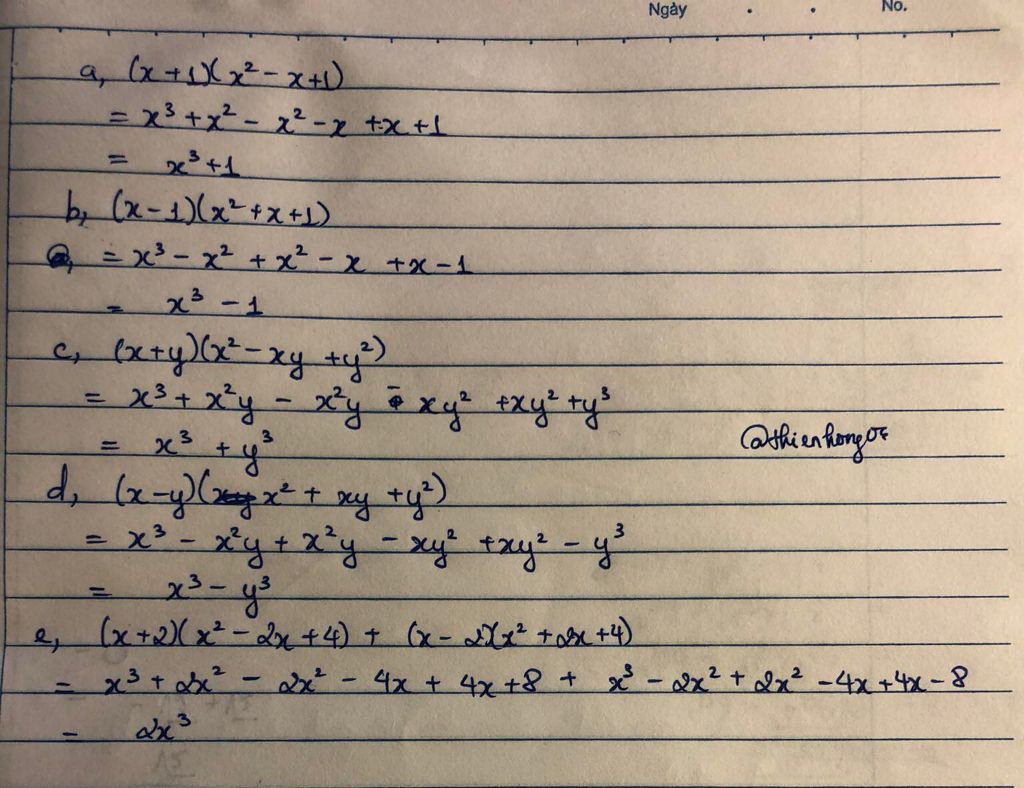 Ngày . . No.
a, (x+1)(x² - x+1)
= x³ + x² - x² - x + x + 1
= x³ + 1
b, (x-1)(x² + x + 1)
= x³ - x² + x² - x + x - 1
= x³ - 1
c, (x+y)(x² - xy + y²)
= x³ + x²y - x²y - xy² + xy² + y³
= x³ + y³
@thienhong05
d, (x-y)(x² + xy + y²)
= x³ - x²y + x²y - xy² + xy² - y³
= x³ - y³
e, (x+2)(x² - 2x + 4) + (x - 2)(x² + 2x + 4)
= x³ + 2x² - 2x² - 4x + 4x + 8 + x³ - 2x² + 2x² - 4x + 4x - 8
= 2x³